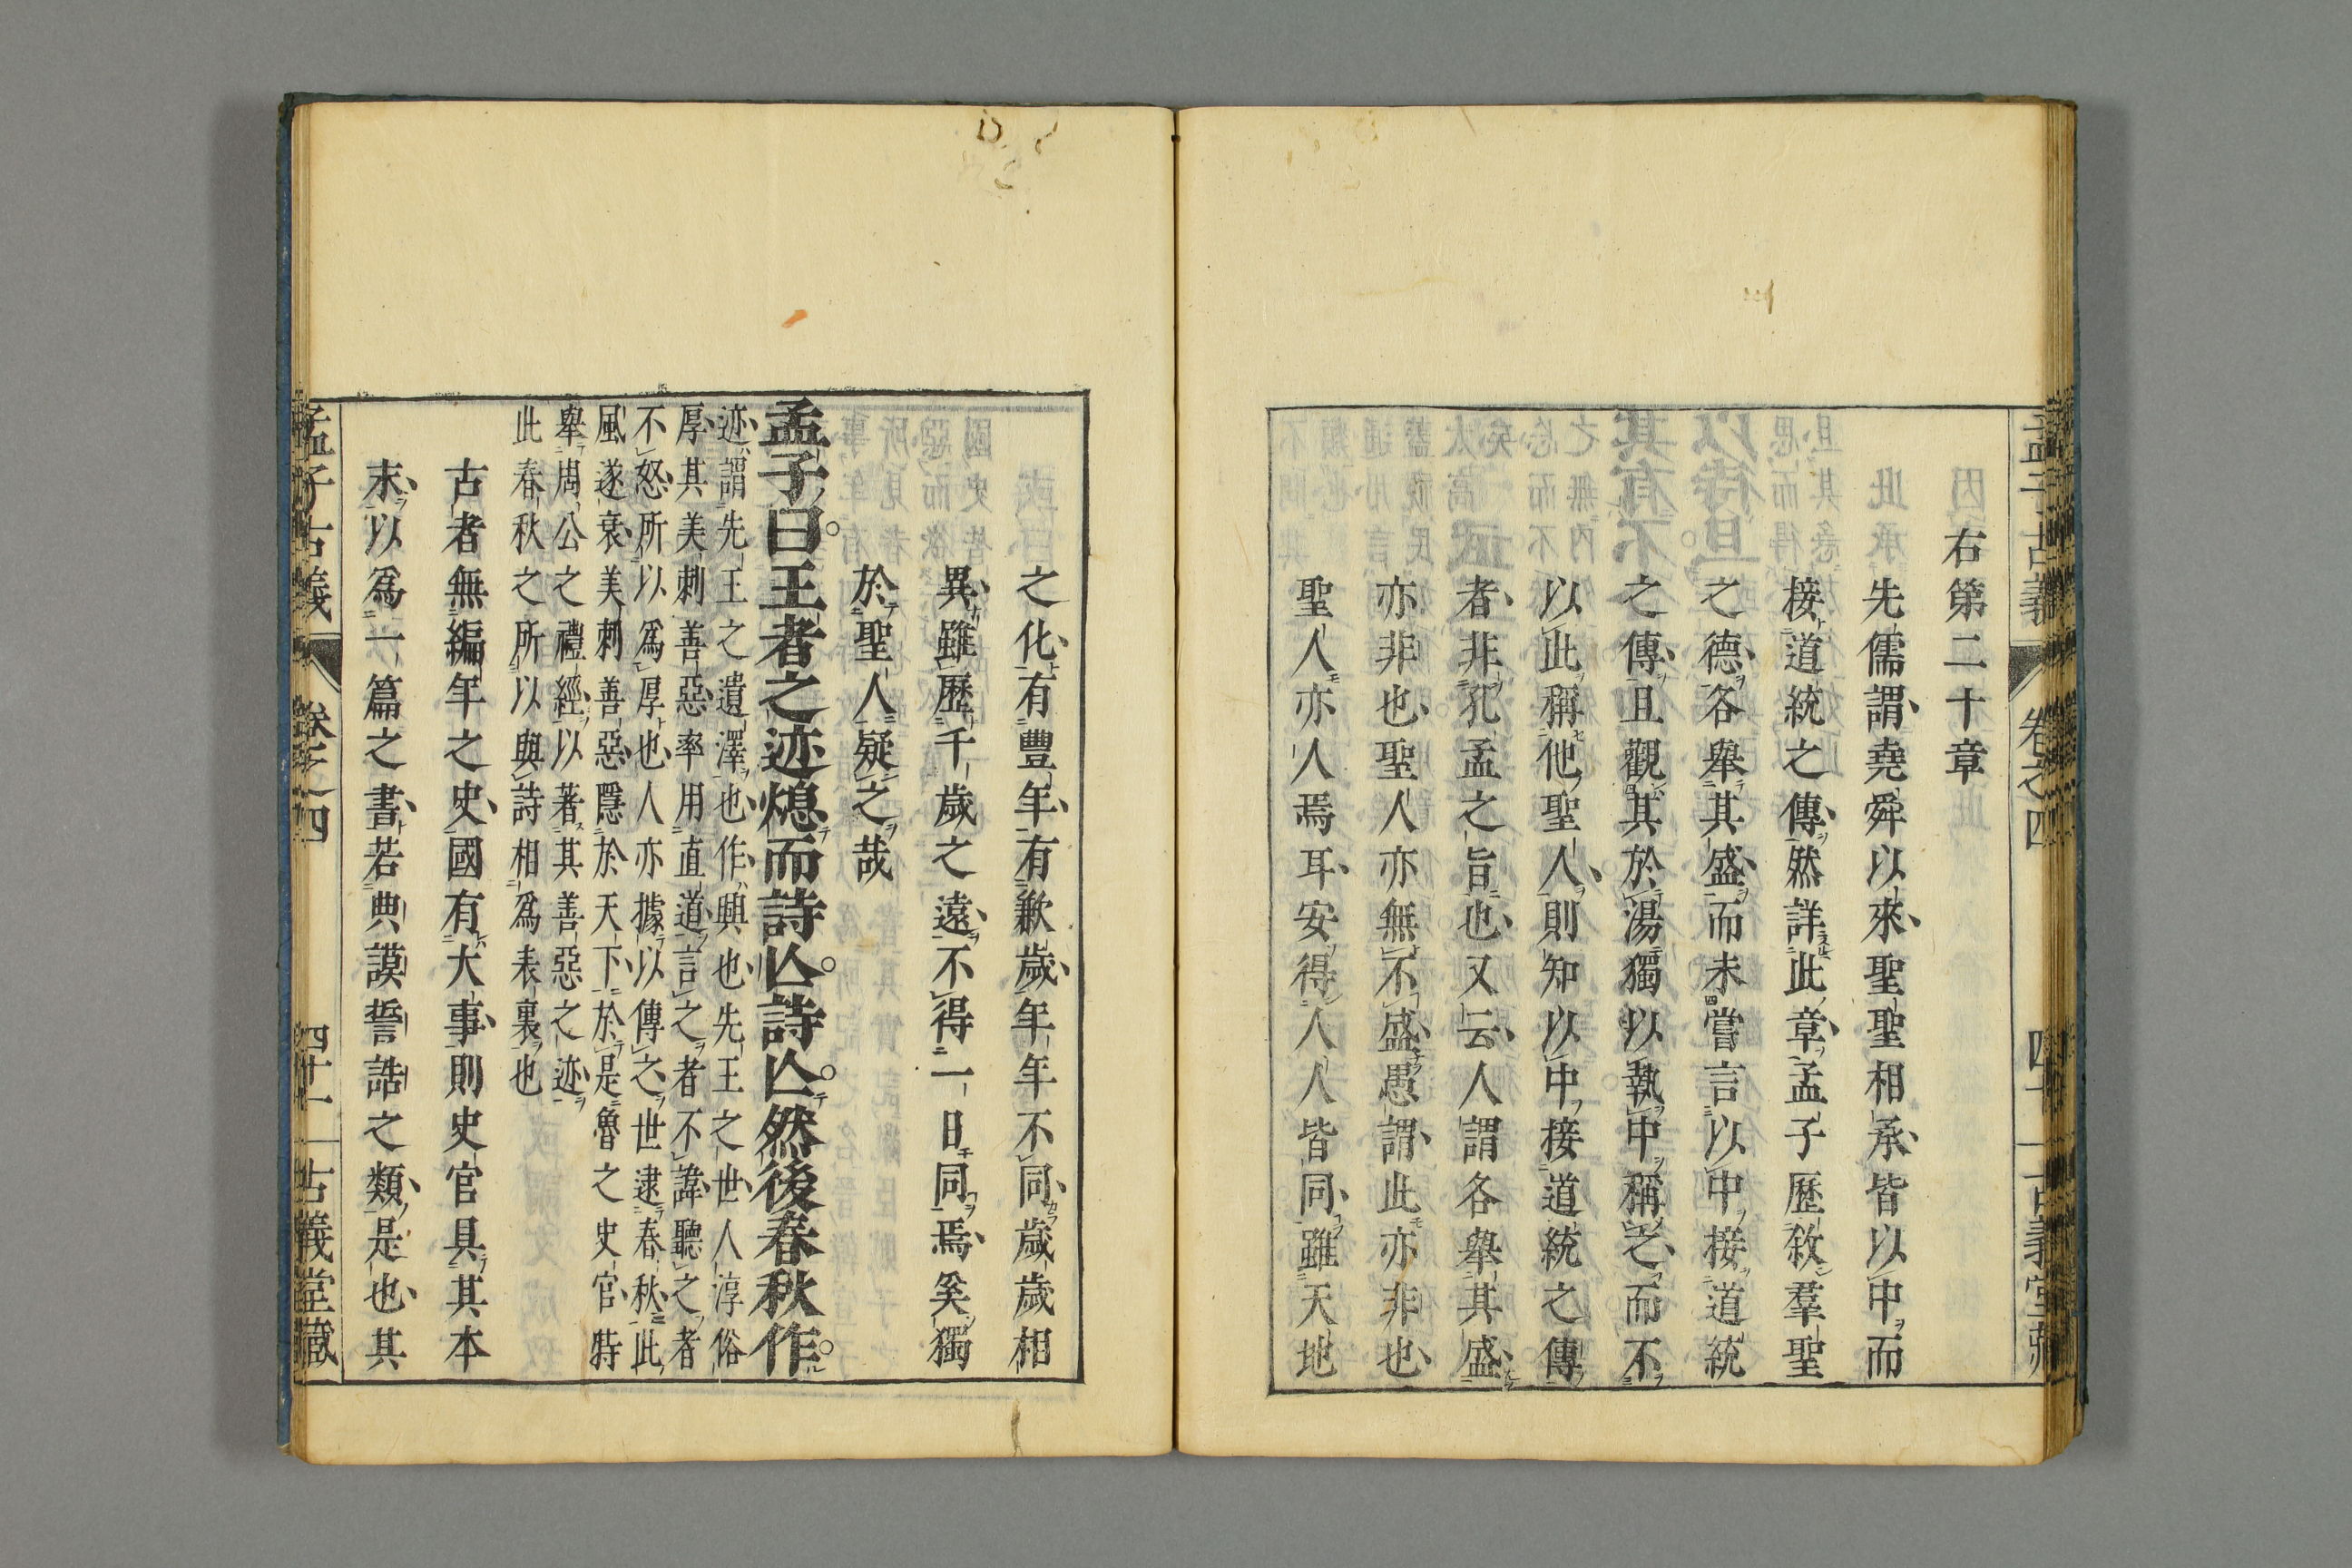 孟子古義 卷之四 四十 古義堂藏
右第二十章
先儒謂堯舜以來聖聖相承皆以中而
接道統之傳然詳此章孟子歷敘羣聖
之德各舉其盛而未嘗言以中接道統
之傳且觀其於湯獨以執中稱之而不
以此稱他聖人則知以中接道統之傳
者非孔孟之旨也又云人謂各舉其盛
亦非也聖人亦無不盛愚謂此亦非也
聖人亦人焉耳安得人人皆同雖天地
之化有豐年有歉歲年年不同歲歲相
異雖歷千歲之遠不得一日同焉奚獨
於聖人疑之哉
孟子曰王者之迹熄而詩亾詩亾然後春秋作
迹謂先王之遺澤也作興也先王之世人淳俗
厚其美刺善惡率用直道言之者不諱聽之者
不怒所以為厚也人亦據以傳之世逮春秋此
風遂衰美刺善惡隱於天下於是魯之史官特
舉周公之禮經以著其善惡之迹
此春秋之所以與詩相為表裏也
古者無編年之史國有大事則史官具其本
末以為一篇之書若典謨誓誥之類是也其
孟子古義 卷之四 四十一 古義堂藏